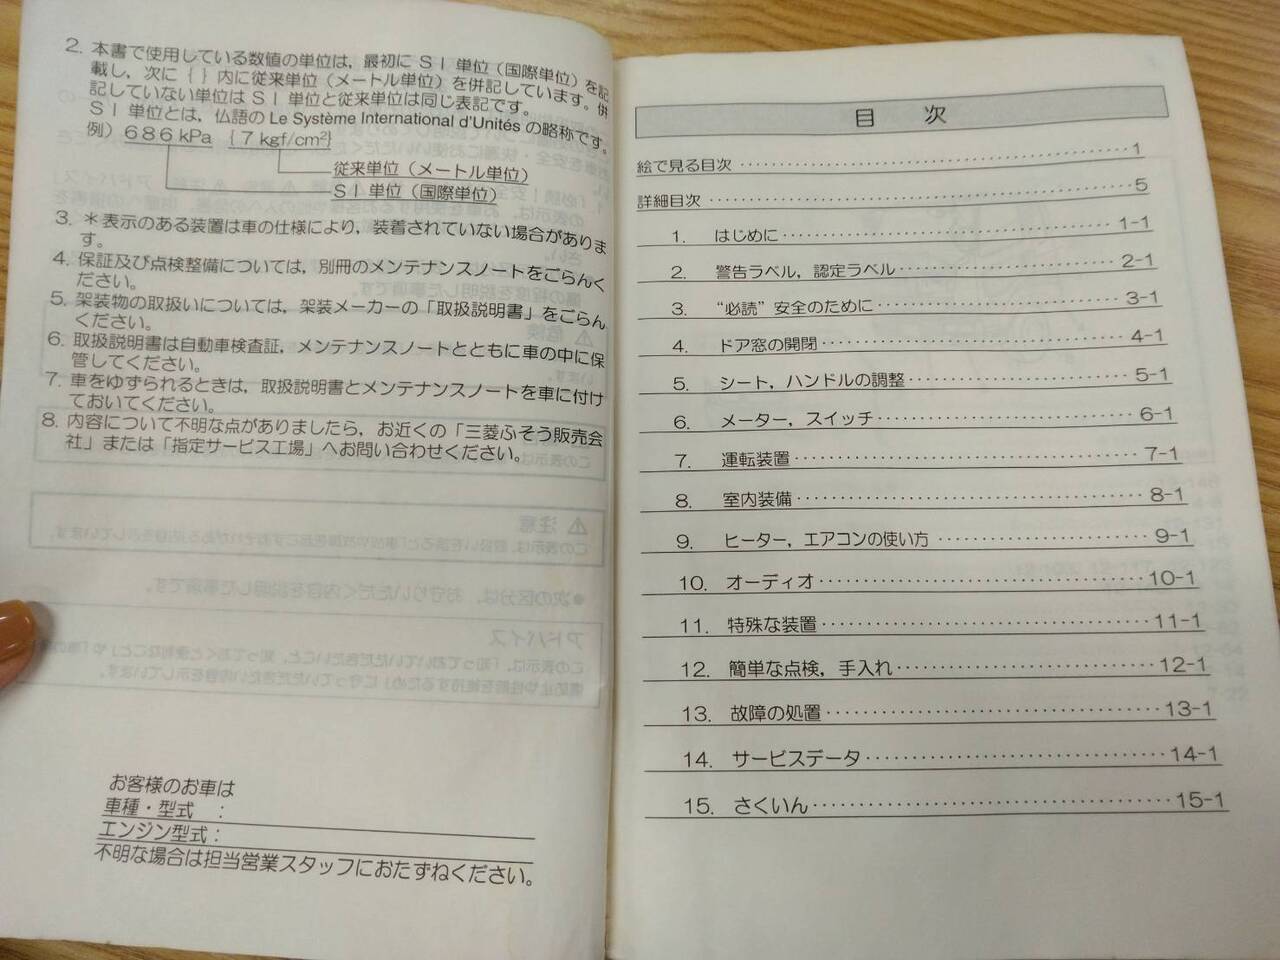 2. 本書で使用している数値の単位は，最初にＳＩ単位（国際単位）を記
載し，次に｛ ｝内に従来単位（メートル単位）を併記しています。併
記していない単位はＳＩ単位と従来単位は同じ表記です。
ＳＩ単位とは，仏語の Le Système International d'Unités の略称です。
例）686 kPa ｛7 kgf/cm²｝
従来単位（メートル単位）
ＳＩ単位（国際単位）
3. ＊表示のある装置は車の仕様により，装着されていない場合がありま
す。
4. 保証及び点検整備については，別冊のメンテナンスノートをごらんく
ださい。
5. 架装物の取扱いについては，架装メーカーの「取扱説明書」をごらん
ください。
6. 取扱説明書は自動車検査証，メンテナンスノートとともに車の中に保
管してください。
7. 車をゆずられるときは，取扱説明書とメンテナンスノートを車に付け
ておいてください。
8. 内容について不明な点がありましたら，お近くの「三菱ふそう販売会
社」または「指定サービス工場」へお問い合わせください。
お客様のお車は
車種・型式　：
エンジン型式：
不明な場合は担当営業スタッフにおたずねください。
目　次
絵で見る目次 ‥‥‥‥‥‥‥‥‥‥ 1
詳細目次 ‥‥‥‥‥‥‥‥‥‥ 5
1. はじめに ‥‥‥‥‥‥‥‥‥‥ 1-1
2. 警告ラベル，認定ラベル ‥‥‥‥‥‥‥‥‥‥ 2-1
3. “必読”安全のために ‥‥‥‥‥‥‥‥‥‥ 3-1
4. ドア窓の開閉 ‥‥‥‥‥‥‥‥‥‥ 4-1
5. シート，ハンドルの調整 ‥‥‥‥‥‥‥‥‥‥ 5-1
6. メーター，スイッチ ‥‥‥‥‥‥‥‥‥‥ 6-1
7. 運転装置 ‥‥‥‥‥‥‥‥‥‥ 7-1
8. 室内装備 ‥‥‥‥‥‥‥‥‥‥ 8-1
9. ヒーター，エアコンの使い方 ‥‥‥‥‥‥‥‥‥‥ 9-1
10. オーディオ ‥‥‥‥‥‥‥‥‥‥ 10-1
11. 特殊な装置 ‥‥‥‥‥‥‥‥‥‥ 11-1
12. 簡単な点検，手入れ ‥‥‥‥‥‥‥‥‥‥ 12-1
13. 故障の処置 ‥‥‥‥‥‥‥‥‥‥ 13-1
14. サービスデータ ‥‥‥‥‥‥‥‥‥‥ 14-1
15. さくいん ‥‥‥‥‥‥‥‥‥‥ 15-1